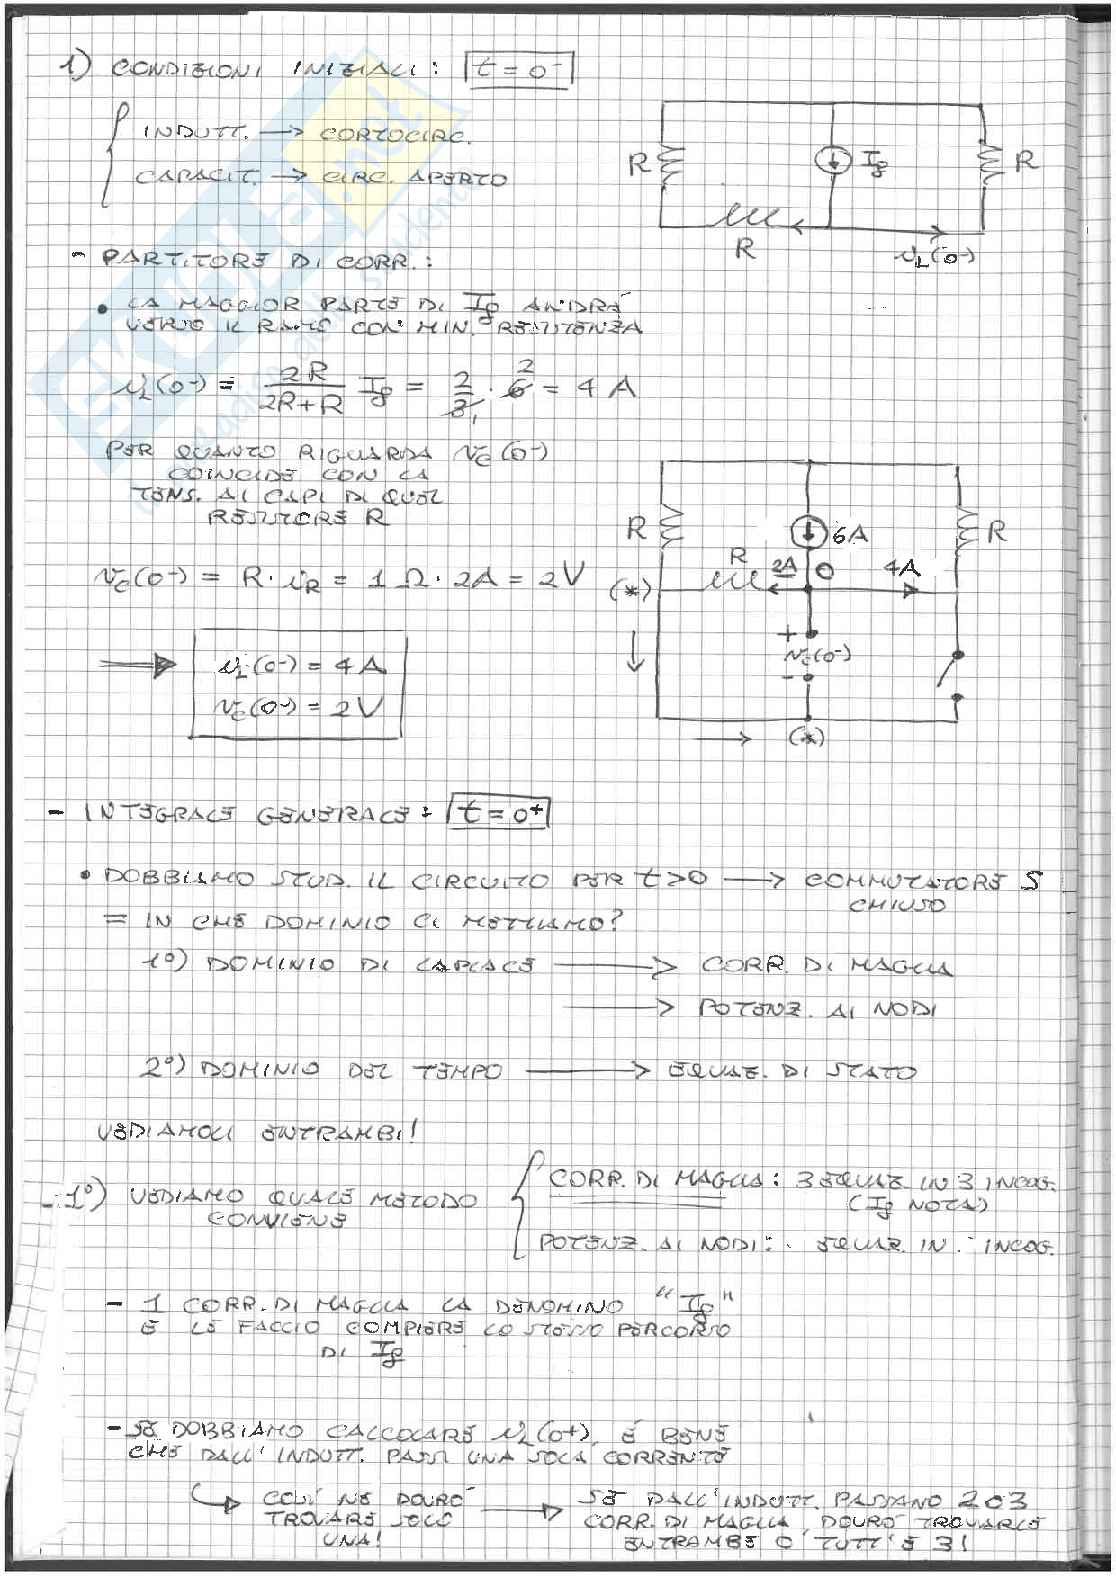 1) CONDIZIONI INIZIALI: t=0⁻
INDUTT. → CORTOCIRC.
CAPACIT. → CIRC. APERTO
R
Ig
R
R
iL(0-)
- PARTITORE DI CORR.:
• LA MAGGIOR PARTE DI Ig ANDRÁ
VERSO IL RAMO CON MIN. RESISTENZA
iL(0-) = 2R/(2R+R) Ig = 2/3 · 6 = 4 A
PER QUANTO RIGUARDA vC(0-)
COINCIDE CON LA
TENS. AI CAPI DI QUEL
RESISTORE R
R
6A
R
R
2A
0
4A
vC(0-) = R · iR = 1 Ω · 2A = 2V
(*)
+
vC(0-)
-
(*)
⇒ iL(0-) = 4 A
vC(0-) = 2V
- INTEGRALE GENERALE: t=0⁺
• DOBBIAMO STUD. IL CIRCUITO PER t>0 → COMMUTATORE S
CHIUSO
= IN CHE DOMINIO CI METTIAMO?
1º) DOMINIO DI LAPLACE → CORR. DI MAGLIA
→ POTENZ. AI NODI
2º) DOMINIO DEL TEMPO → EQUAZ. DI STATO
VEDIAMOLI ENTRAMBI!
- 1º) VEDIAMO QUALE METODO
CONVIENE
CORR. DI MAGLIA: 3 EQUAZ IN 3 INCOG.
(Ig NOTA)
POTENZ. AI NODI: . EQUAZ. IN . INCOG.
- 1 CORR. DI MAGLIA LA DENOMINO "Ig"
E LE FACCIO COMPIERE LO STESSO PERCORSO
DI Ig
- SE DOBBIAMO CALCOLARE iL(0+), É BENE
CHE DALL' INDUTT. PASSI UNA SOLA CORRENTE
↪ COSI' NE DOVRO'
TROVARE SOLO
UNA!
→ SE DALL'INDUTT. PASSANO 2 O 3
CORR. DI MAGLIA, DOVRO' TROVARLE
ENTRAMBE O TUTT'E 3!